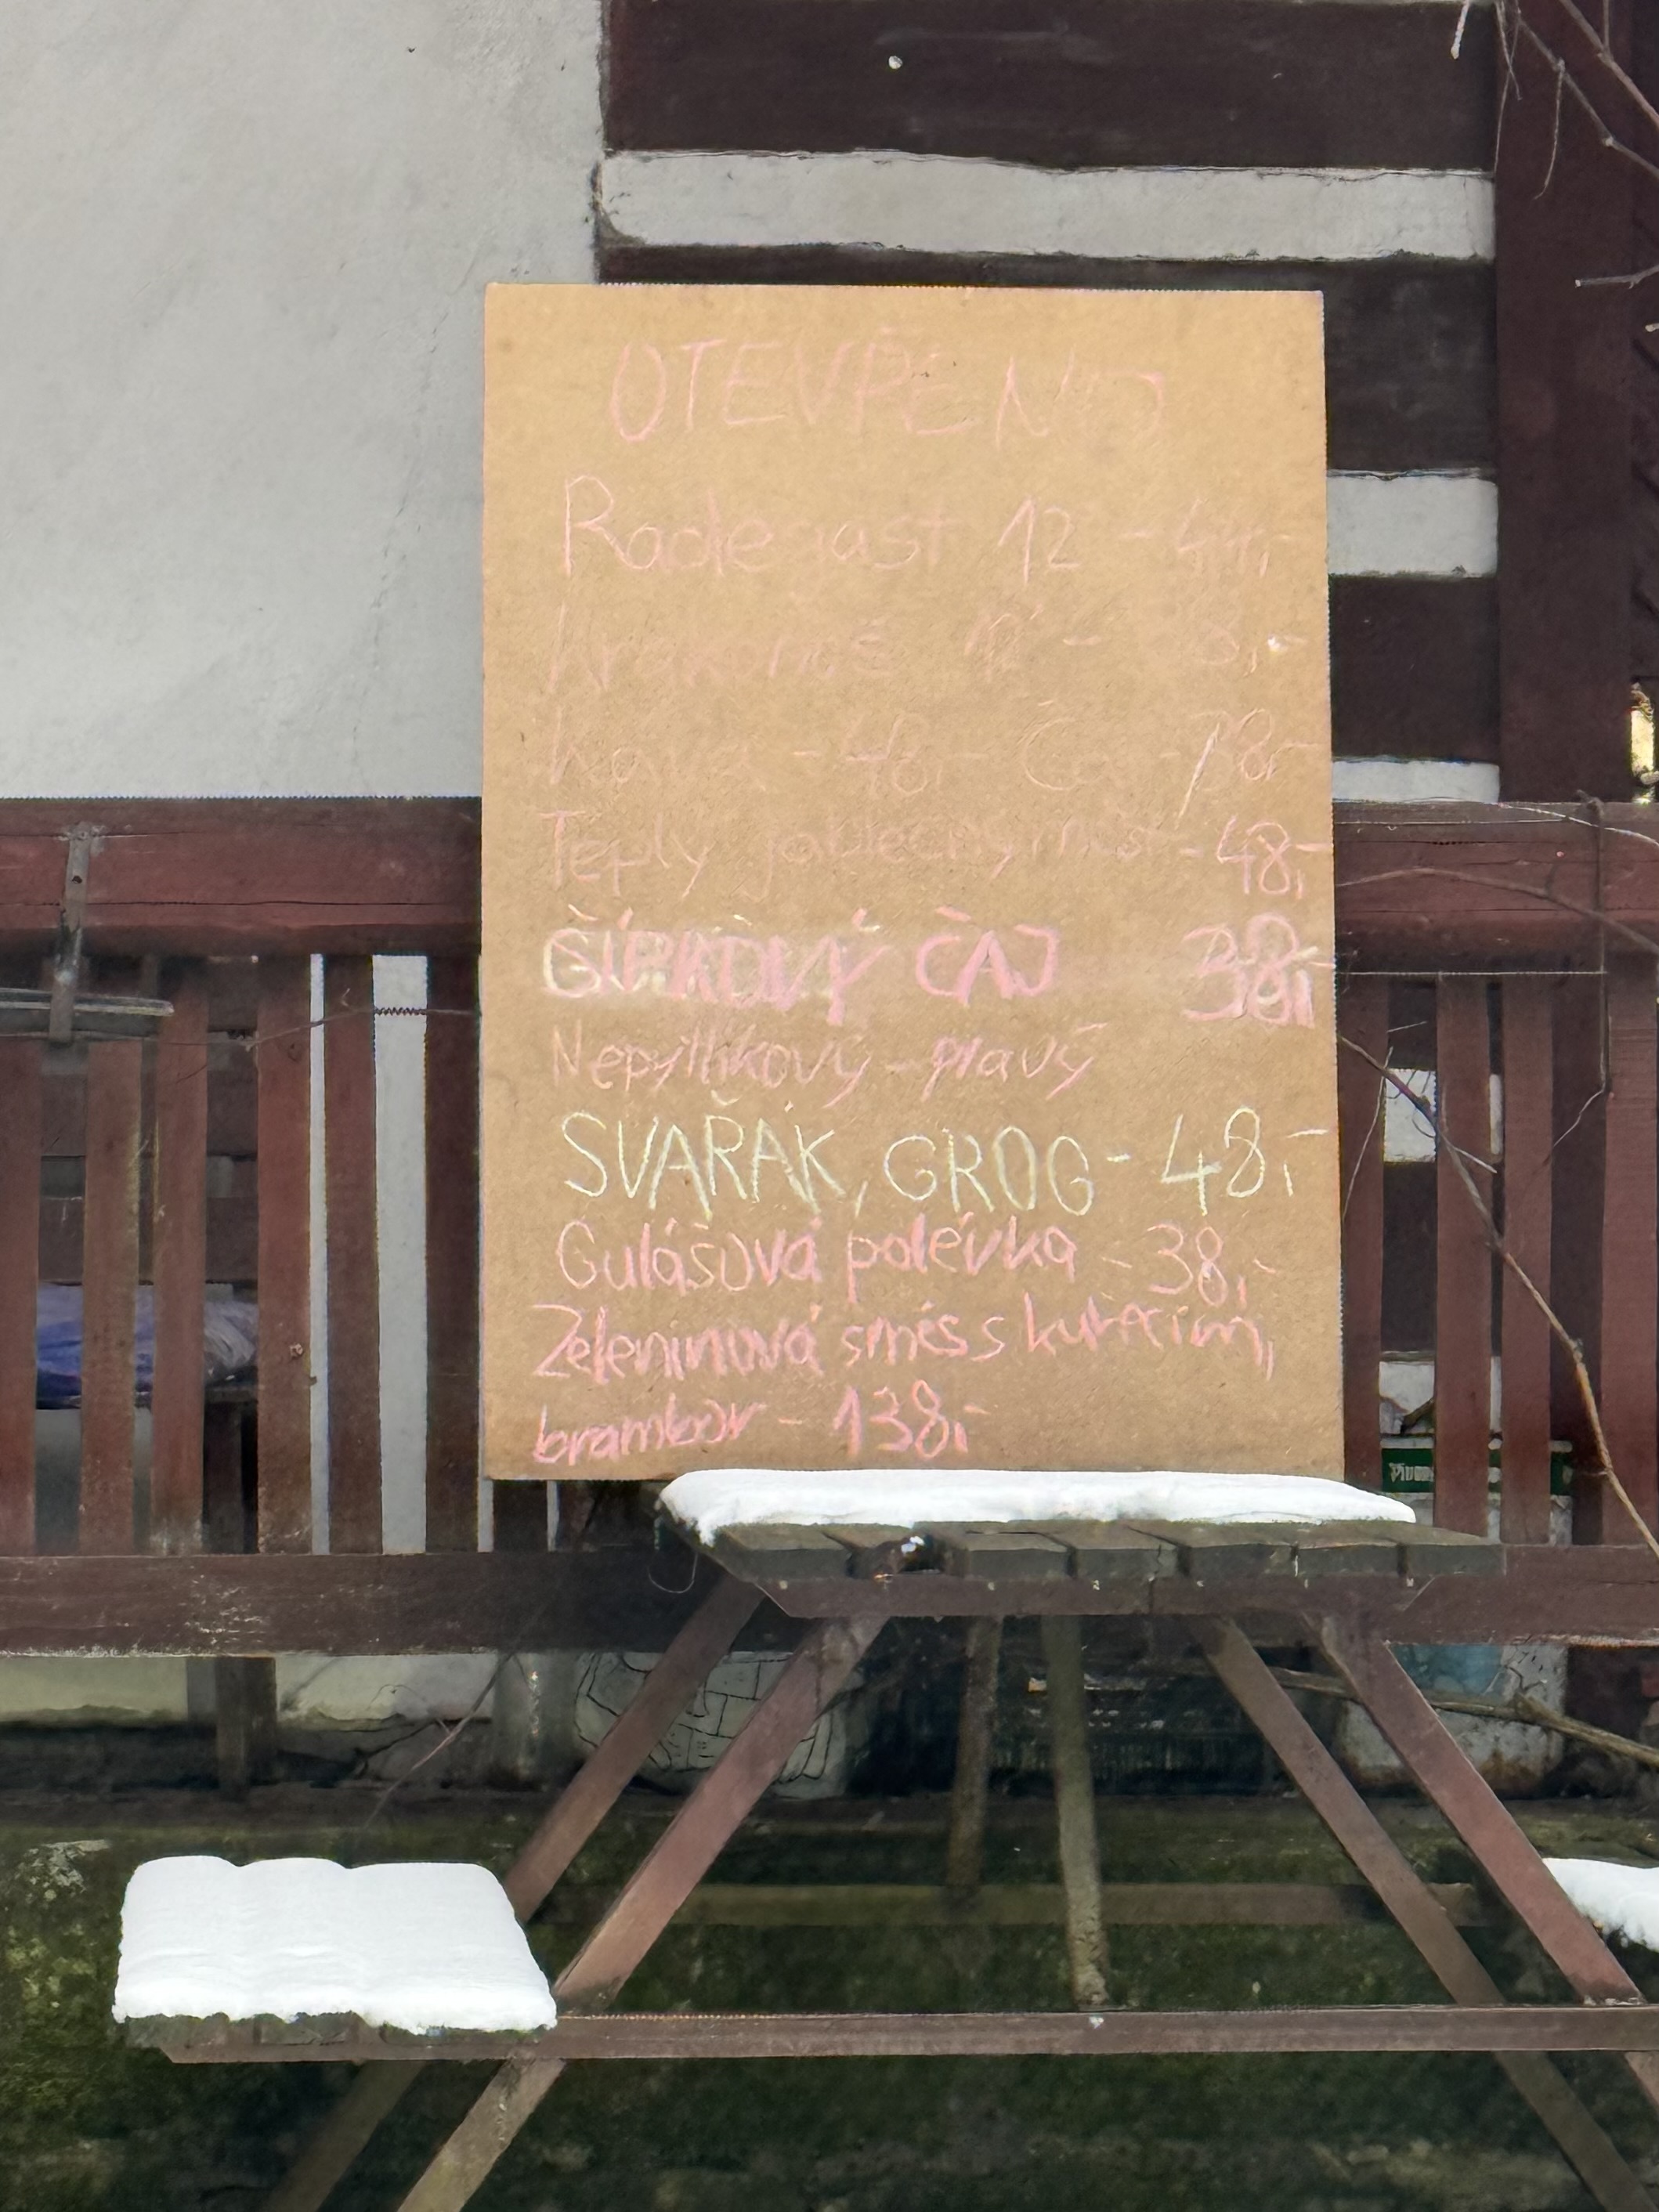 OTEVŘENO
Radegast 12 - 44,-
Krakonoš
Káva - 48,- Čaj - 38,-
Teplý jablečný mošt - 48,-
ŠÍPKOVÝ ČAJ 38,-
Nepytlíkový - pravý
SVAŘÁK, GROG - 48,-
Gulášová polévka - 38,-
Zeleninová směs s kuřecím,
brambor - 138,-